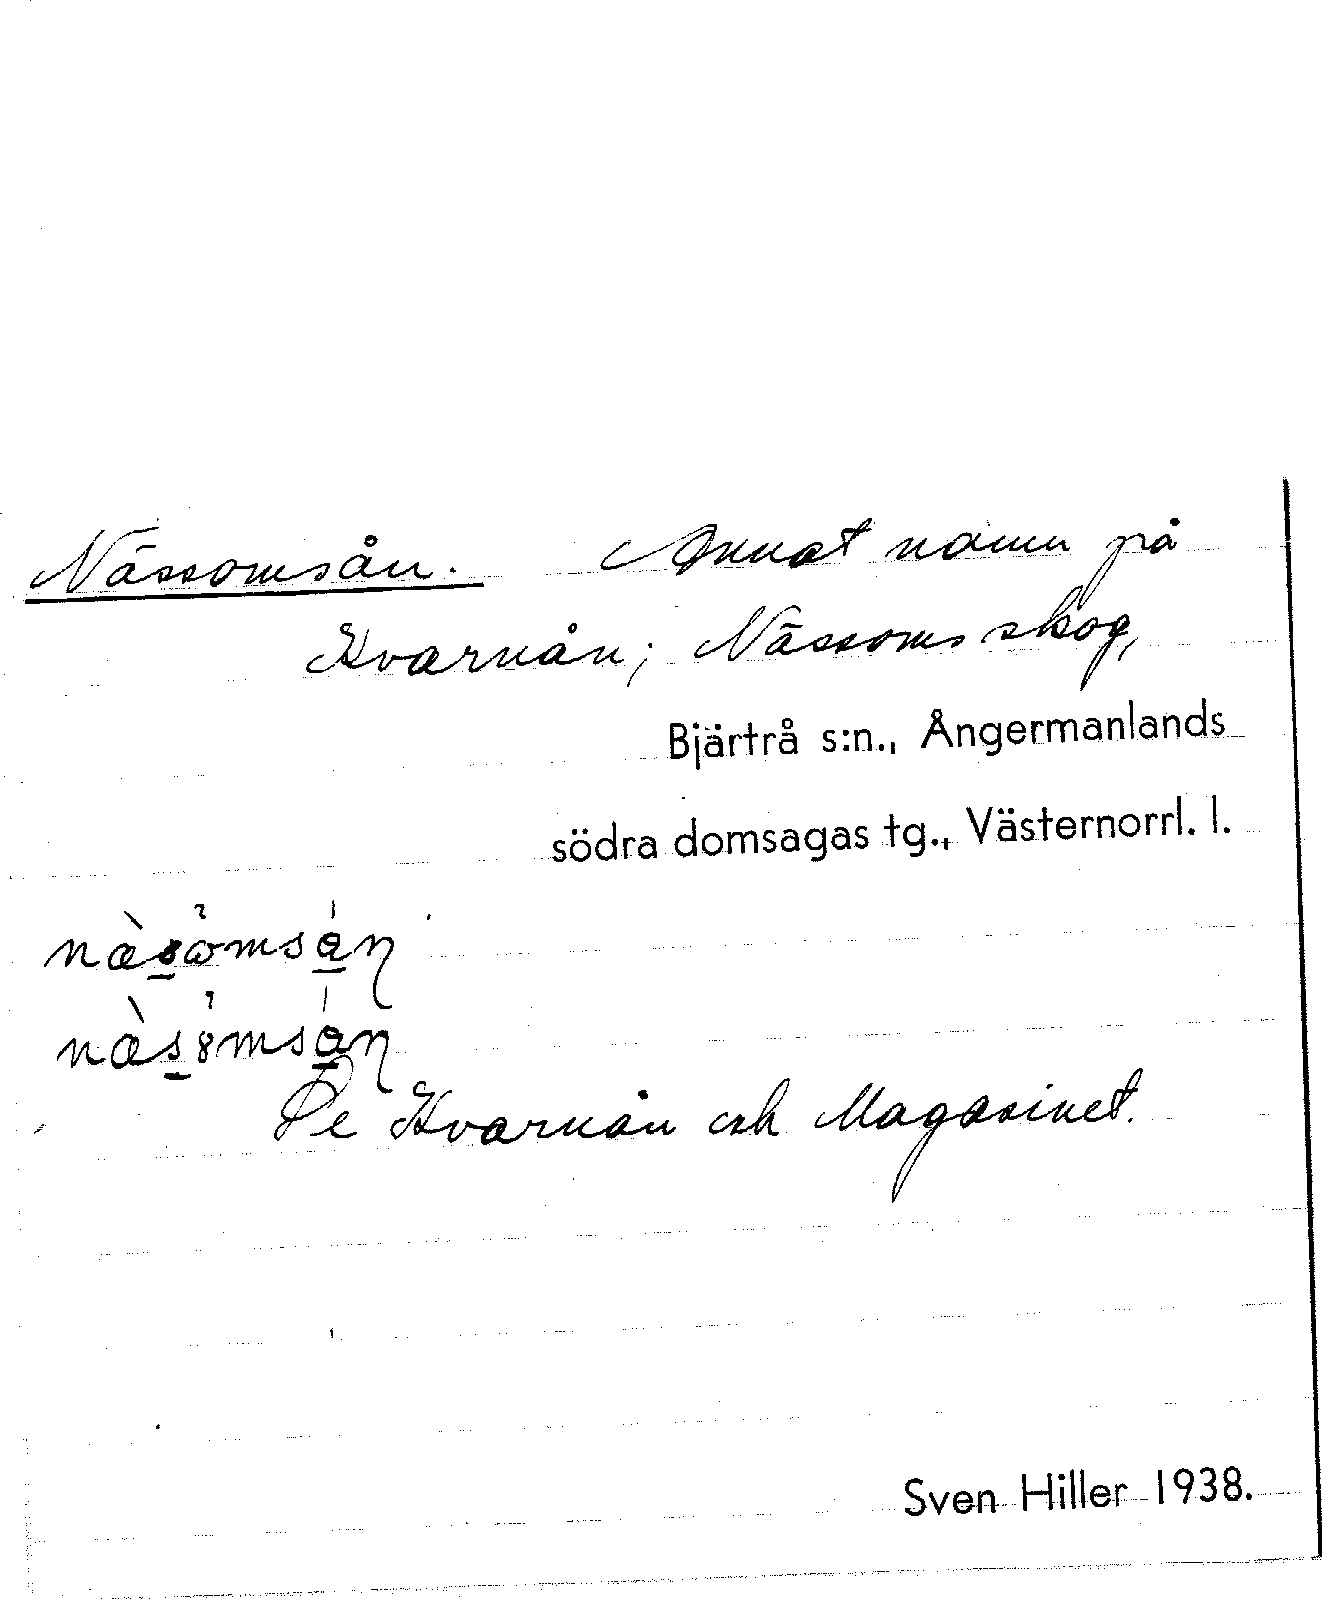 Nässomsån. Annat namn på
Kvarnån; Nässoms skog,
Bjärtrå s:n., Ångermanlands
södra domsagas tg., Västernorrl. l.
Se Kvarnån och Magasinet.
Sven Hiller 1938.